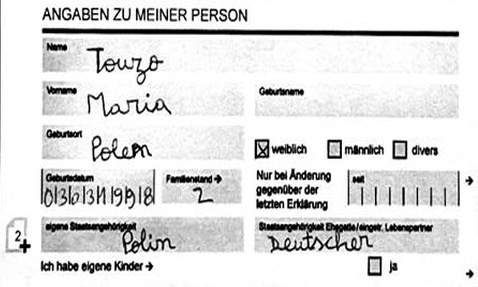 ANGABEN ZU MEINER PERSON
Name
Touzo
Vorname
Maria
Geburtsname
Geburtsort
Polen
weiblich männlich divers
Geburtsdatum
Familienstand →
Nur bei Änderung gegenüber der letzten Erklärung
seit
03031998
2
→
eigene Staatsangehörigkeit
Polin
Staatsangehörigkeit Ehegatte/eingetr. Lebenspartner
Deutscher
2
+
Ich habe eigene Kinder →
ja
→